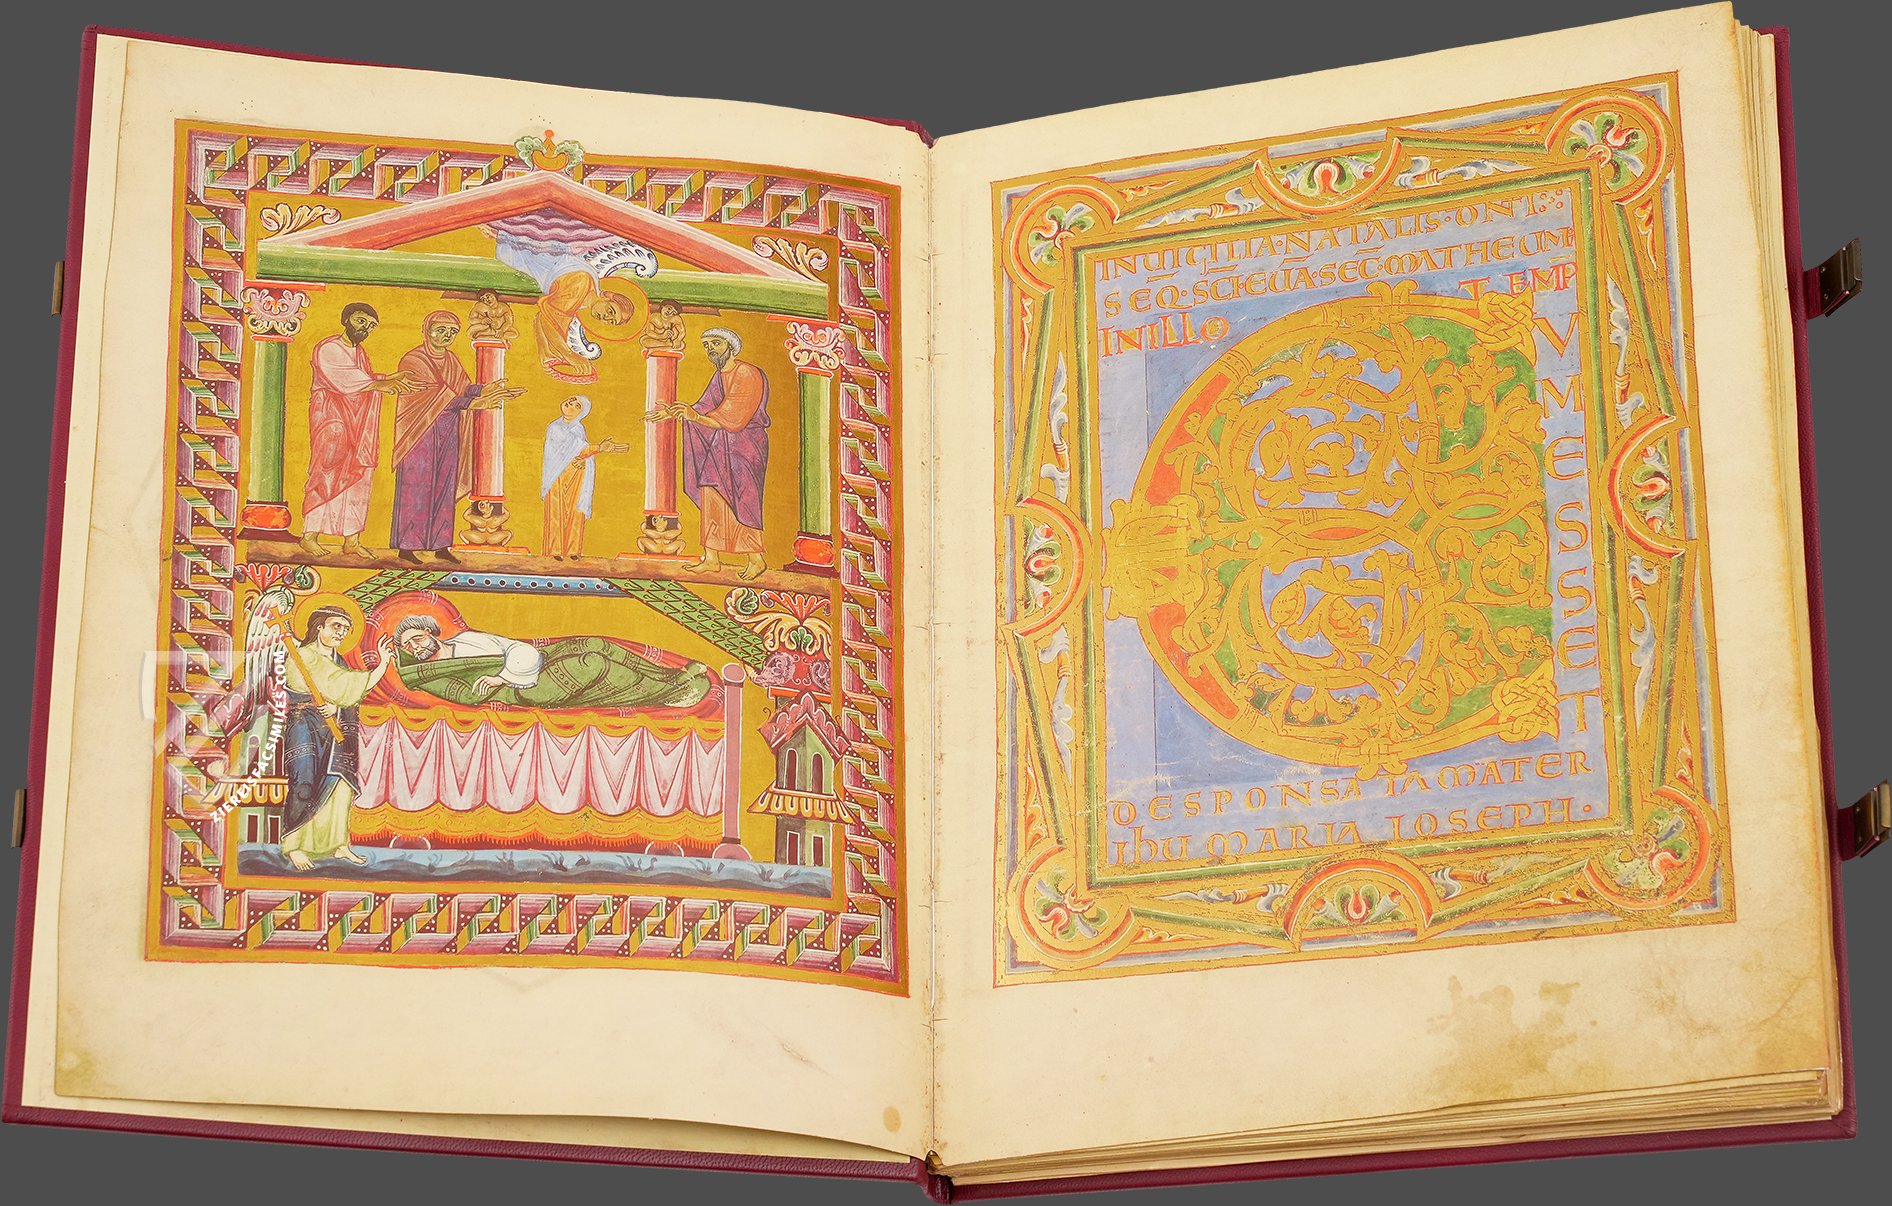 ZIEREISFACSIMILES.COM
INVIGILIA·NATALIS·DNI
SEQ·SCI EVA·SEC·MATHEUM
INILLO TEMP
C
VM ESSET
DESPONSATA MATER
IhU MARIA IOSEPH·